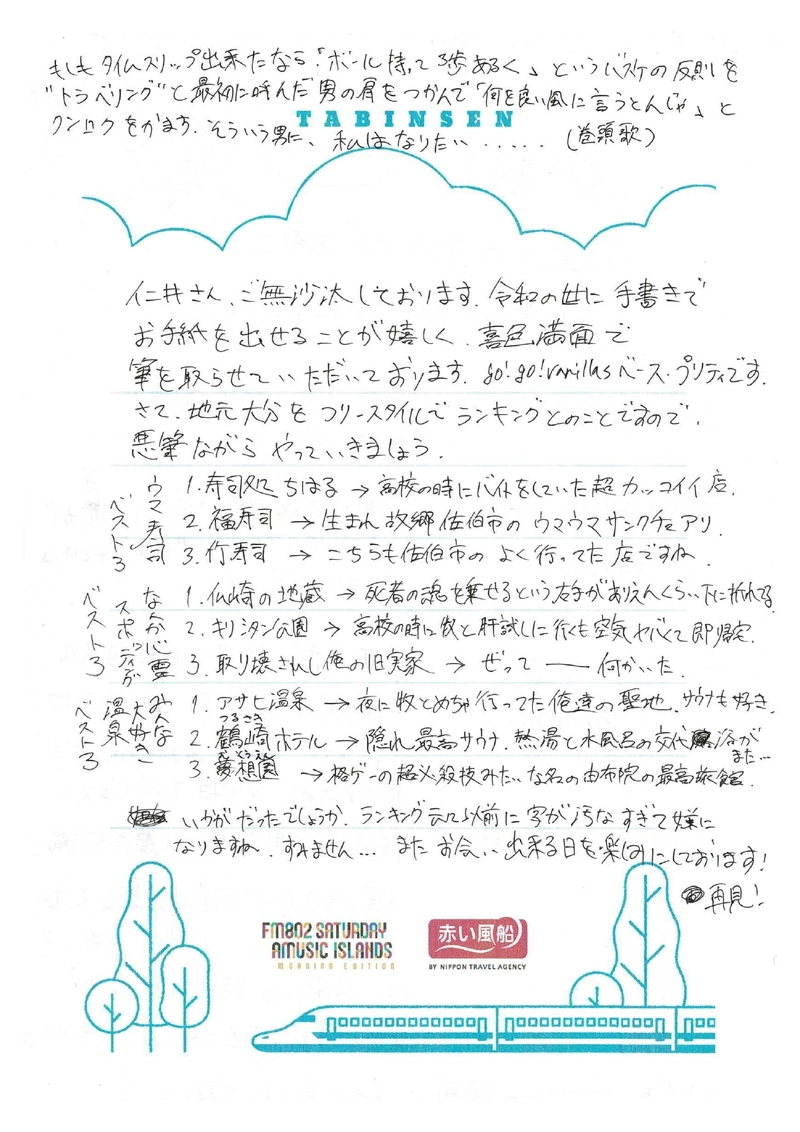 もしもタイムスリップ出来たなら「ボール持って3歩あるく」というバスケの反則を
"トラベリング"と最初に呼んだ男の肩をつかんで「何を良い風に言うとんじゃ」と
TABINSEN
クンロクをかます。そういう男に、私はなりたい.....(巻頭歌)
仁井さん、ご無沙汰しております。令和の世に手書きで
お手紙を出せることが嬉しく、喜色満面で
筆を取らせていただいております。go!go!vanillasベース・プリティです。
さて、地元大分をフリースタイルでランキングとのことですので、
悪筆ながらやっていきましょう。
ウマ寿司
ベスト3
1.寿司処ちはる→高校の時にバイトをしていた超カッコイイ店。
2.福寿司→生まれ故郷佐伯市のウマウマサンクチュアリ。
3.竹寿司→こちらも佐伯市のよく行ってた店ですね。
なんか心霊
スポットぽいが
ベスト3
1.仏崎の地蔵→死者の魂を乗せるという右手がありえんくらい下に折れてる
2.キリシタン公園→高校の時に牧と肝試しに行くも空気ヤバくて即帰宅。
3.取り壊されし俺の旧実家→ぜってーー何かいた。
みんな
大好き
温泉
ベスト3
1.アサヒ温泉→夜に牧とめちゃ行ってた俺達の聖地。サウナも好き。
2.鶴崎ホテル→隠れ最高サウナ。熱湯と水風呂の交代浴がまた…
つるさき
3.夢想園→格ゲーの超必殺技みたいな名の由布院の最高旅館。
むそうえん
いかがだったでしょうか。ランキング云々以前に字が汚なすぎて嫌に
なりますね。すみません…またお会い出来る日を楽しみにしております!
再見!
FM802 SATURDAY
AMUSIC ISLANDS
MORNING EDITION
赤い風船
BY NIPPON TRAVEL AGENCY